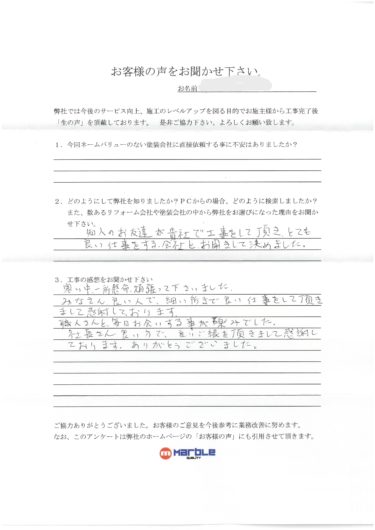 お客様の声をお聞かせ下さい。
お名前
弊社では今後のサービス向上、施工のレベルアップを図る目的でお施主様から工事完了後
「生の声」を頂戴しております。 是非ご協力下さい。よろしくお願い致します。
1．今回ネームバリューのない塗装会社に直接依頼する事に不安はありましたか？
2．どのようにして弊社を知りましたか？PCからの場合、どのように検索しましたか？
また、数あるリフォーム会社や塗装会社の中から弊社をお選びになった理由をお聞か
せ下さい。
知人のお友達が貴社で工事をして頂き、とても
良い仕事をする会社とお聞きして決めました。
3．工事の感想をお聞かせ下さい
寒い中一所懸命頑張って下さいました。
みなさん良い人で、細い所まで良い仕事をして頂き
まして感謝しております。
職人さんと毎日お会いする事が楽みでした。
社長さん良いので、良いご縁を頂きまして感謝し
ております。ありがとうございました。
ご協力ありがとうございました。お客様のご意見を今後参考に業務改善に努めます。
なお、このアンケートは弊社のホームページの「お客様の声」にも引用させて頂きます。
MARBLE
QUALITY